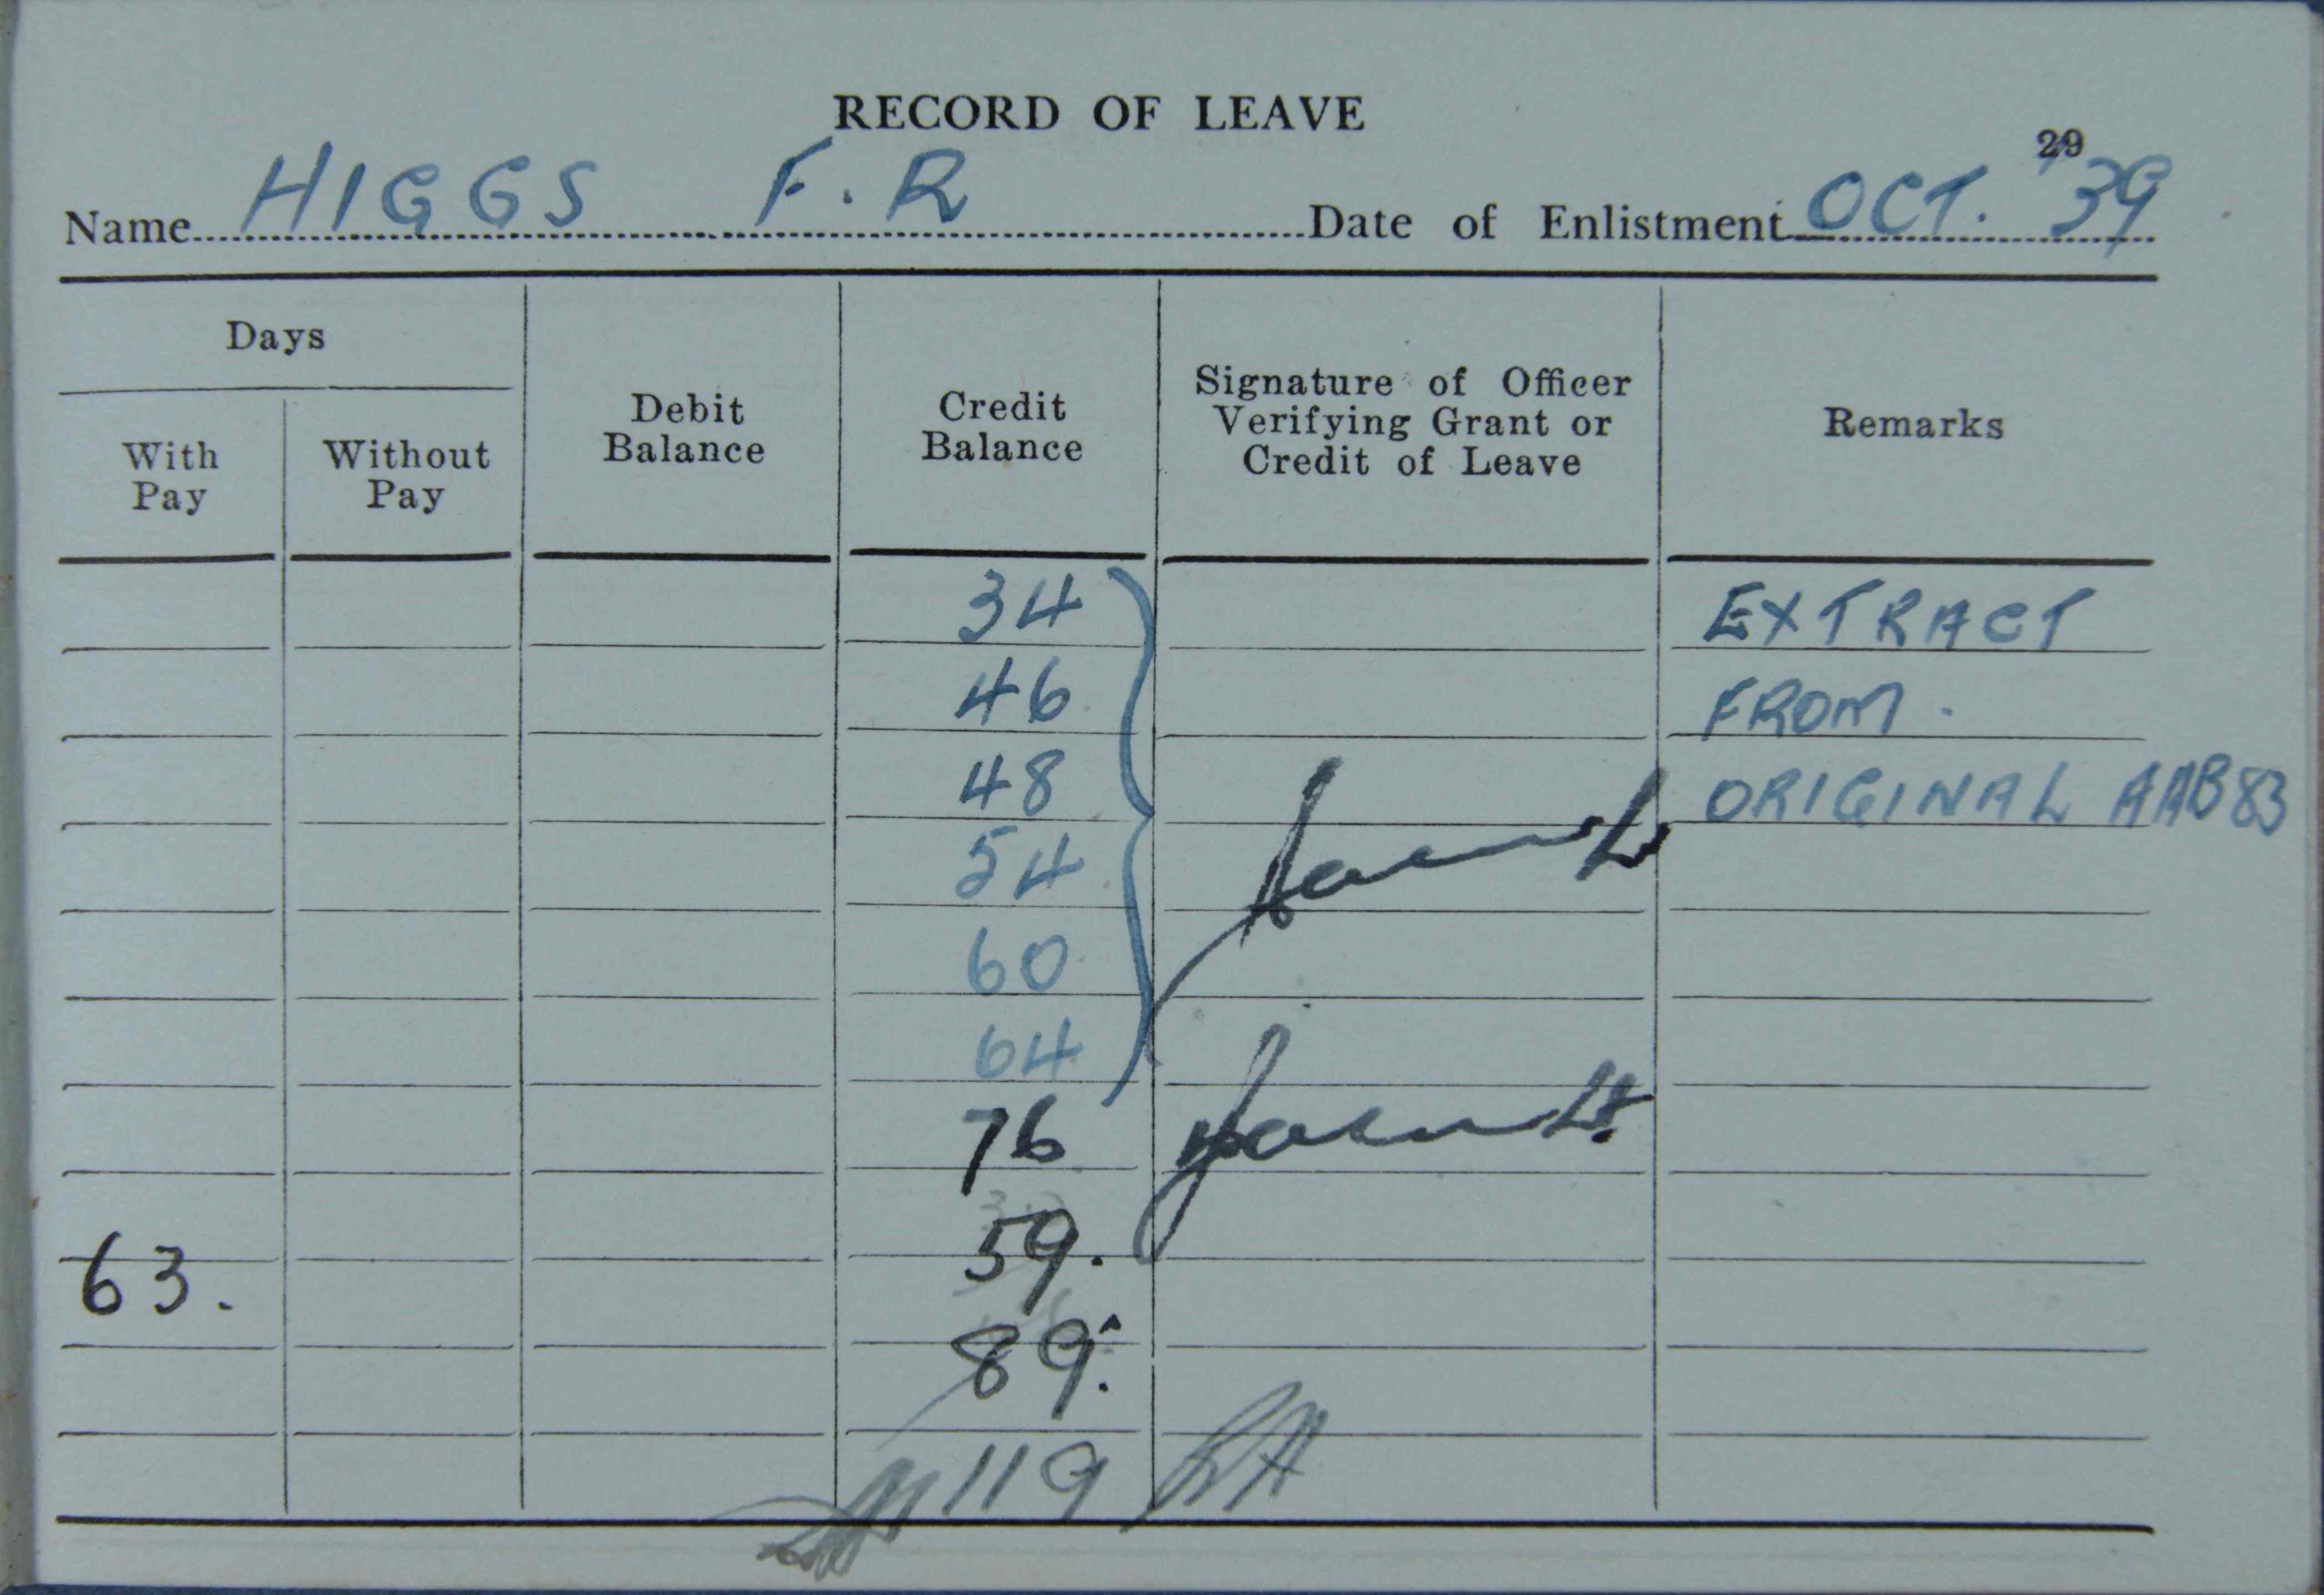 RECORD OF LEAVE
29
Name HIGGS F. R Date of Enlistment OCT. '39
Days
With Pay
Without Pay
Debit Balance
Credit Balance
Signature of Officer Verifying Grant or Credit of Leave
Remarks
34 EXTRACT
46 FROM.
48 ORIGINAL AAB 83
54
60
64
76 Lt.
59.
63.
89.
119